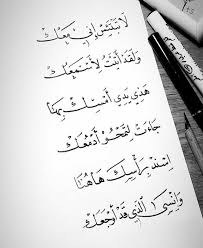 لَا تَبْتَئِسْ إِنِّي مَعَكْ
وَلَقَدْ أَتَيْتُ لِأَسْمَعَكْ
هَذِي يَدِي أَمْسِكْ بِهَا
جَاءَتْ لِتَمْحُوَ أَدْمُعَكْ
اِسْنِدْ بِرَأْسِكَ هَاهُنَا
وَانْسَى الَّذِي قَدْ أَوْجَعَكْ